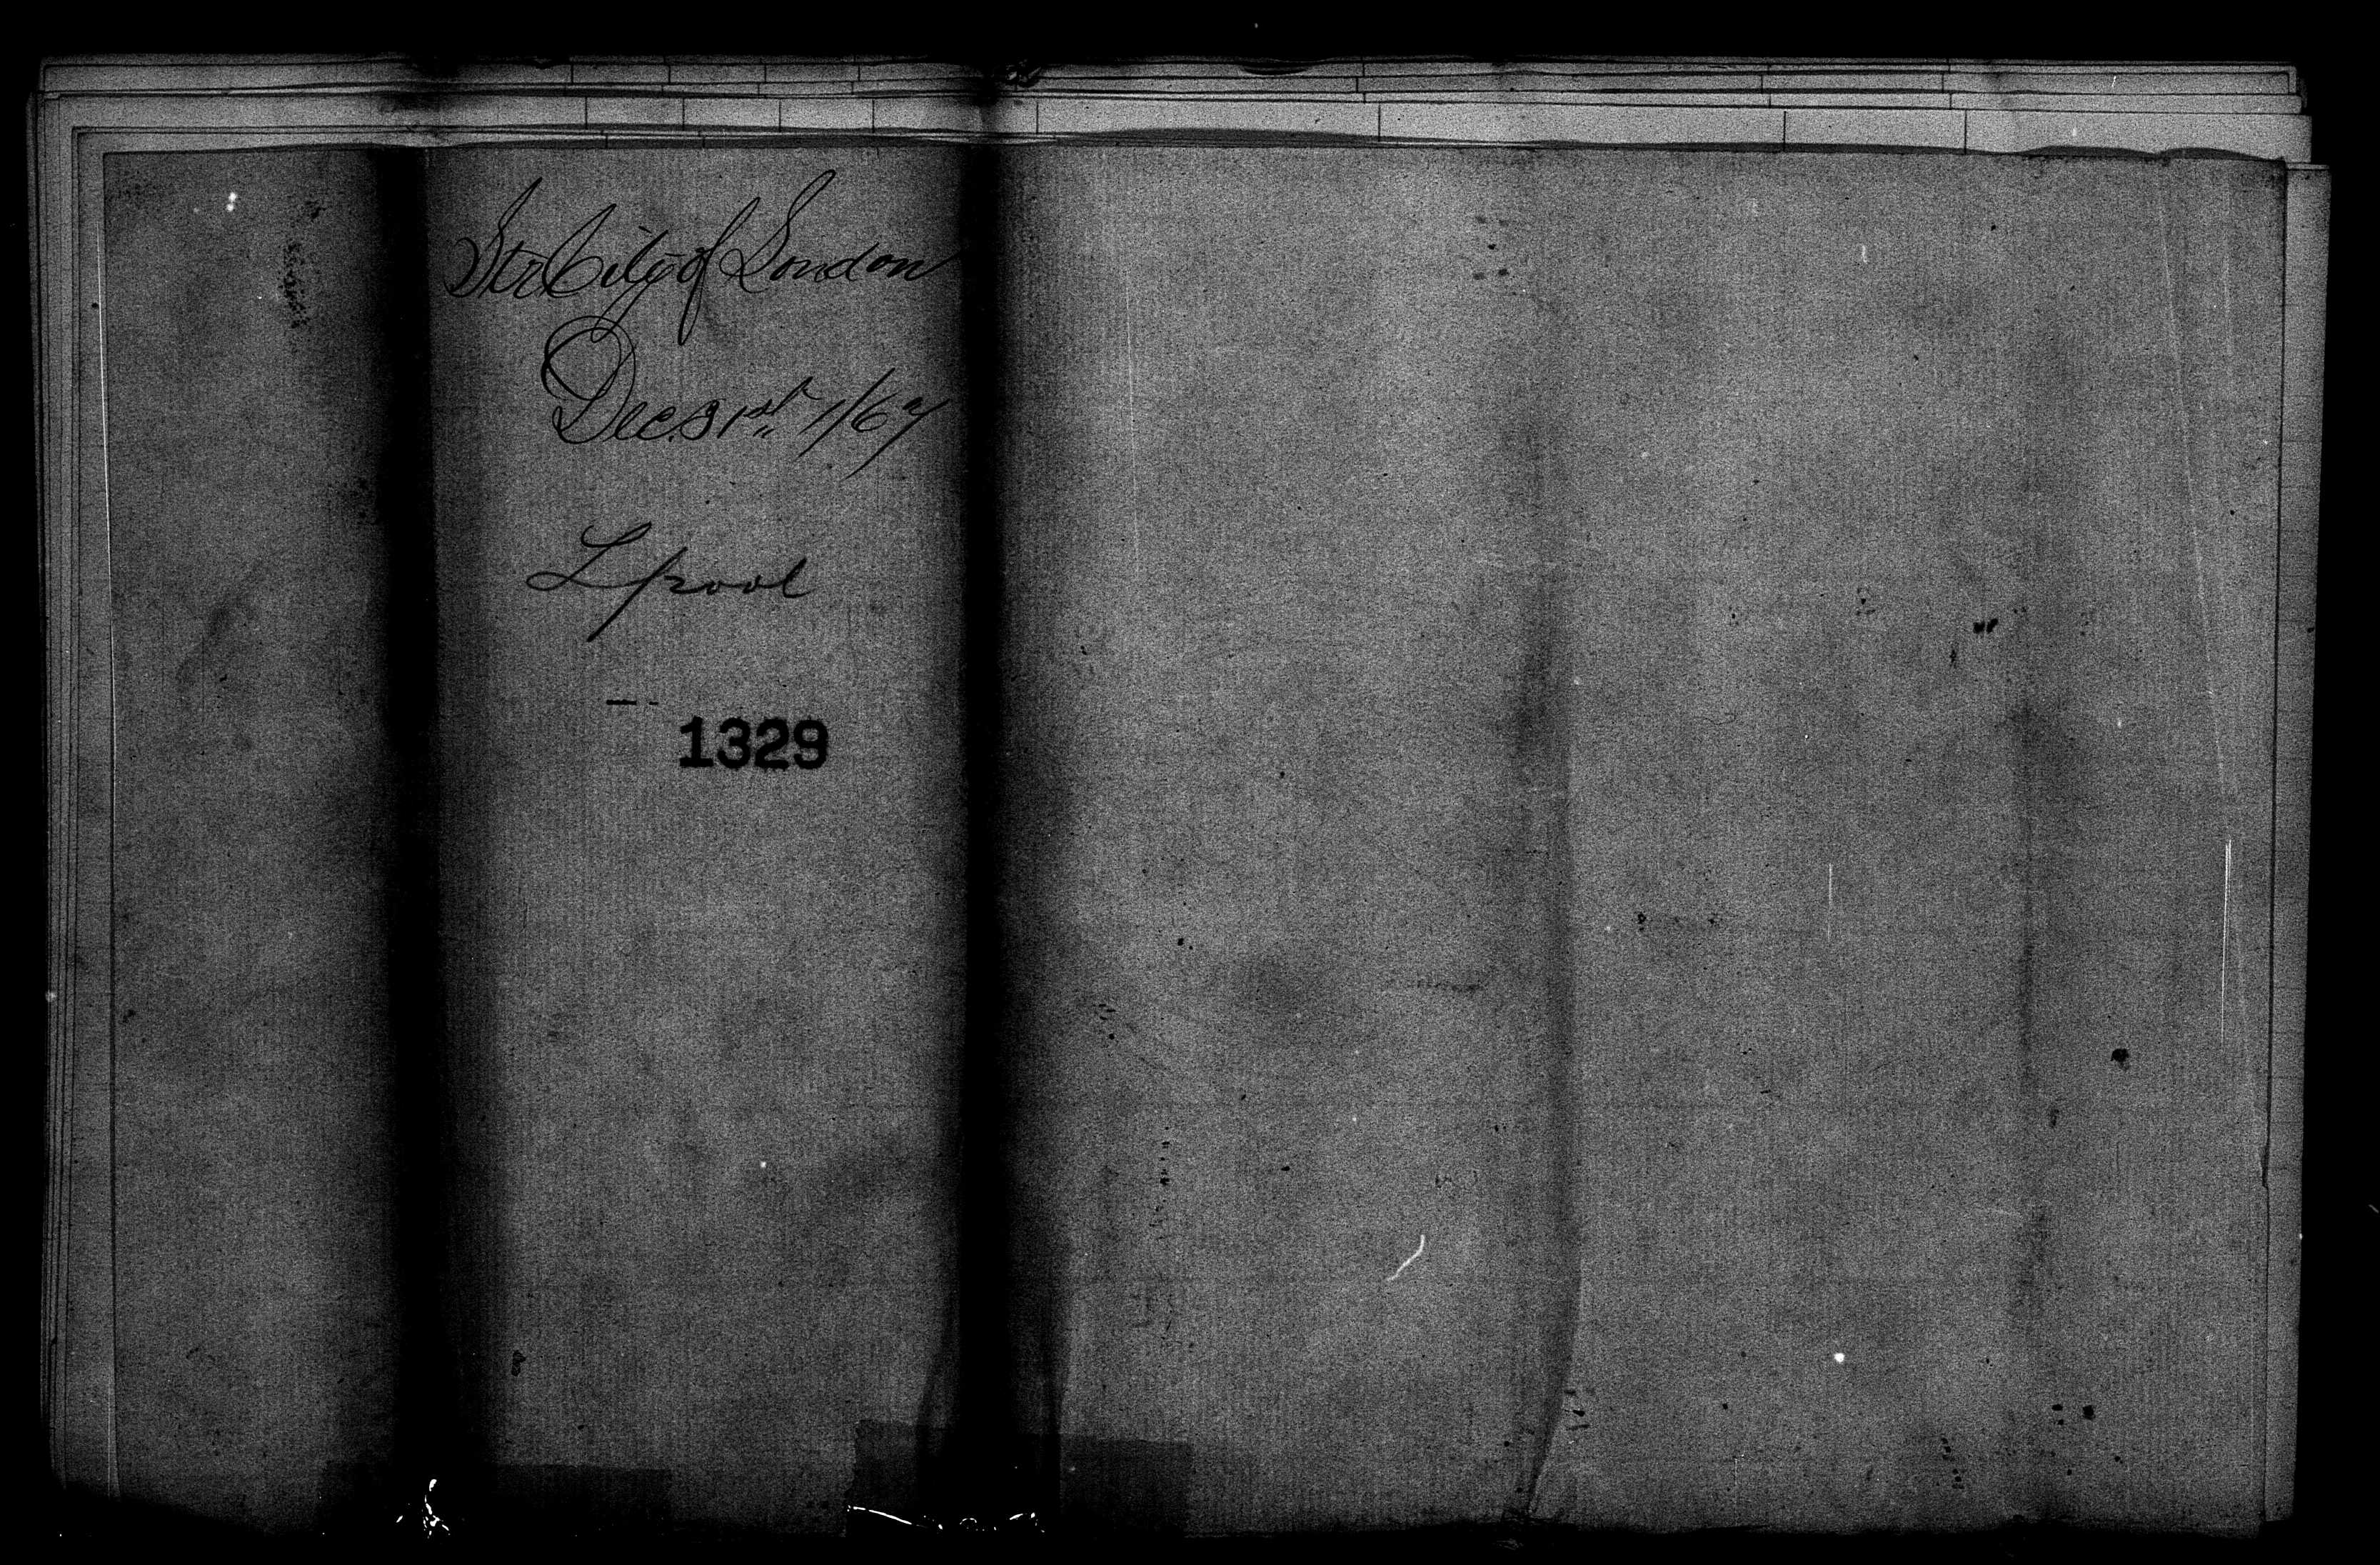 Str City of London
Dec. 31st 1/67
Lpool
1329